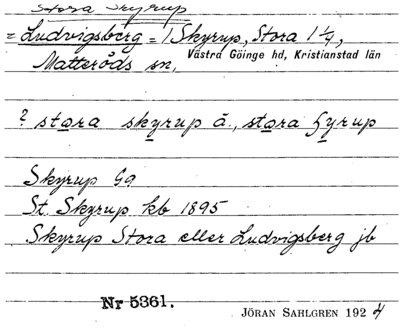 Stora Skyrup
= Ludvigsberg = / Skyrup, Stora 1 1/4,
Västra Göinge hd, Kristianstad län
Matteröds sn,
? stora skyrup ä., stora ʃyrup
Skyrup Ga
St. Skyrup kb 1895
Skyrup Stora eller Ludvigsberg jb
Nr 5361.
JÖRAN SAHLGREN 1924